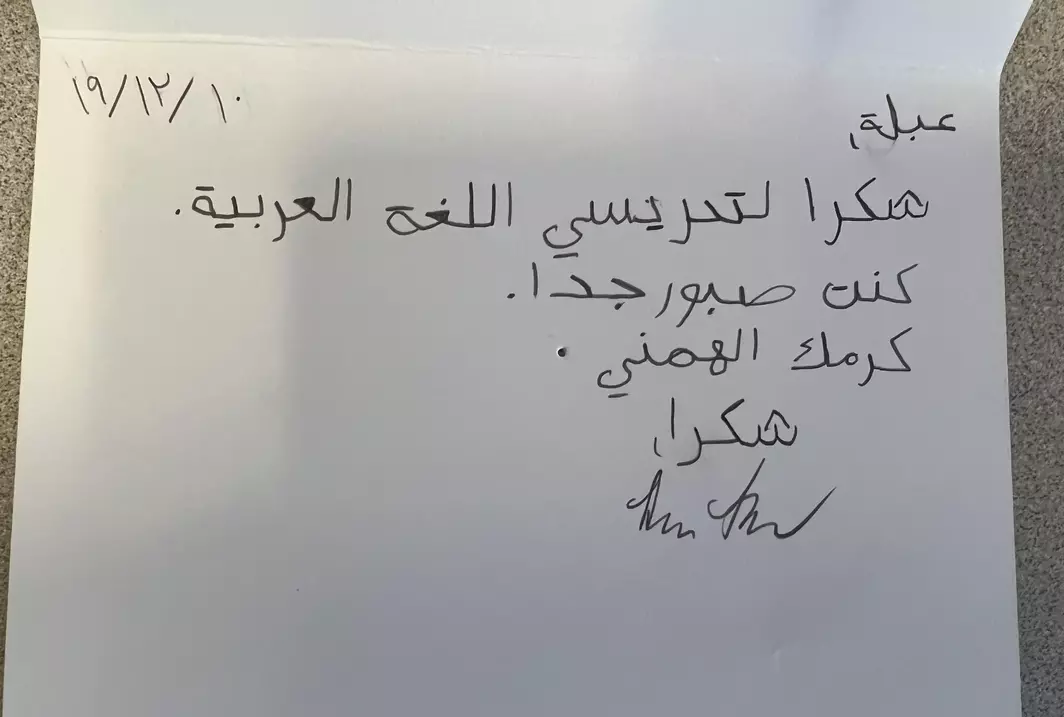 ١٩/١٢/١٠
عبلة,
شكرا لتدريسي اللغة العربية.
كنت صبور جدا.
كرمك الهمني.
شكرا,